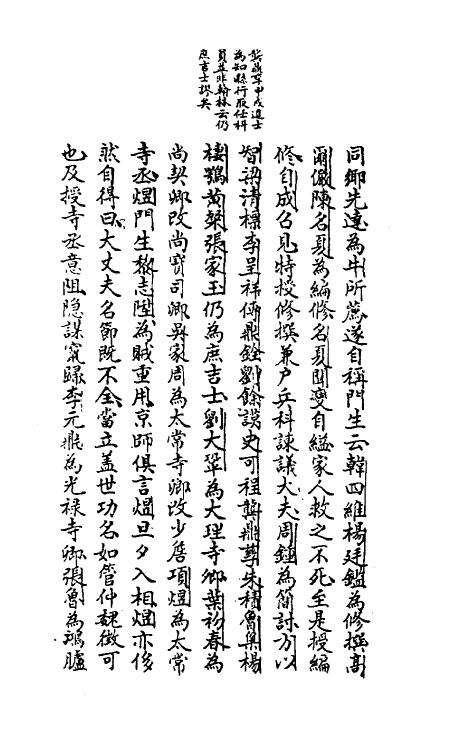 龔鼎孳甲戌進士
為知縣行取任科
員並非翰林云仍
庶吉士誤矣
同鄉先達為牛所薦遂自稱門生云韓四維楊廷鑑為修撰高
爾儼陳名夏為編修名夏聞變自縊家人救之不死至是授編
修自成召見特授修撰兼户兵科諫議大夫周鍾為簡討方以
智梁清標李呈祥何胤錝劉餘謨史可程龔鼎孳朱積魯㮚楊
棲鶚黄燦張家玉仍為庶吉士劉大鞏為大理寺卿葉初春為
尚契卿改尚寶司卿吳家周為太常寺卿改少詹項煜為太常
寺丞煜門生黎志陞為賊重用京師俱言煜旦夕入相煜亦侈
然自得曰大丈夫名節既不全當立蓋世功名如管仲魏徵可
也及授寺丞意阻隐謀竄歸李元鼎為光禄寺卿張魯為鴻臚